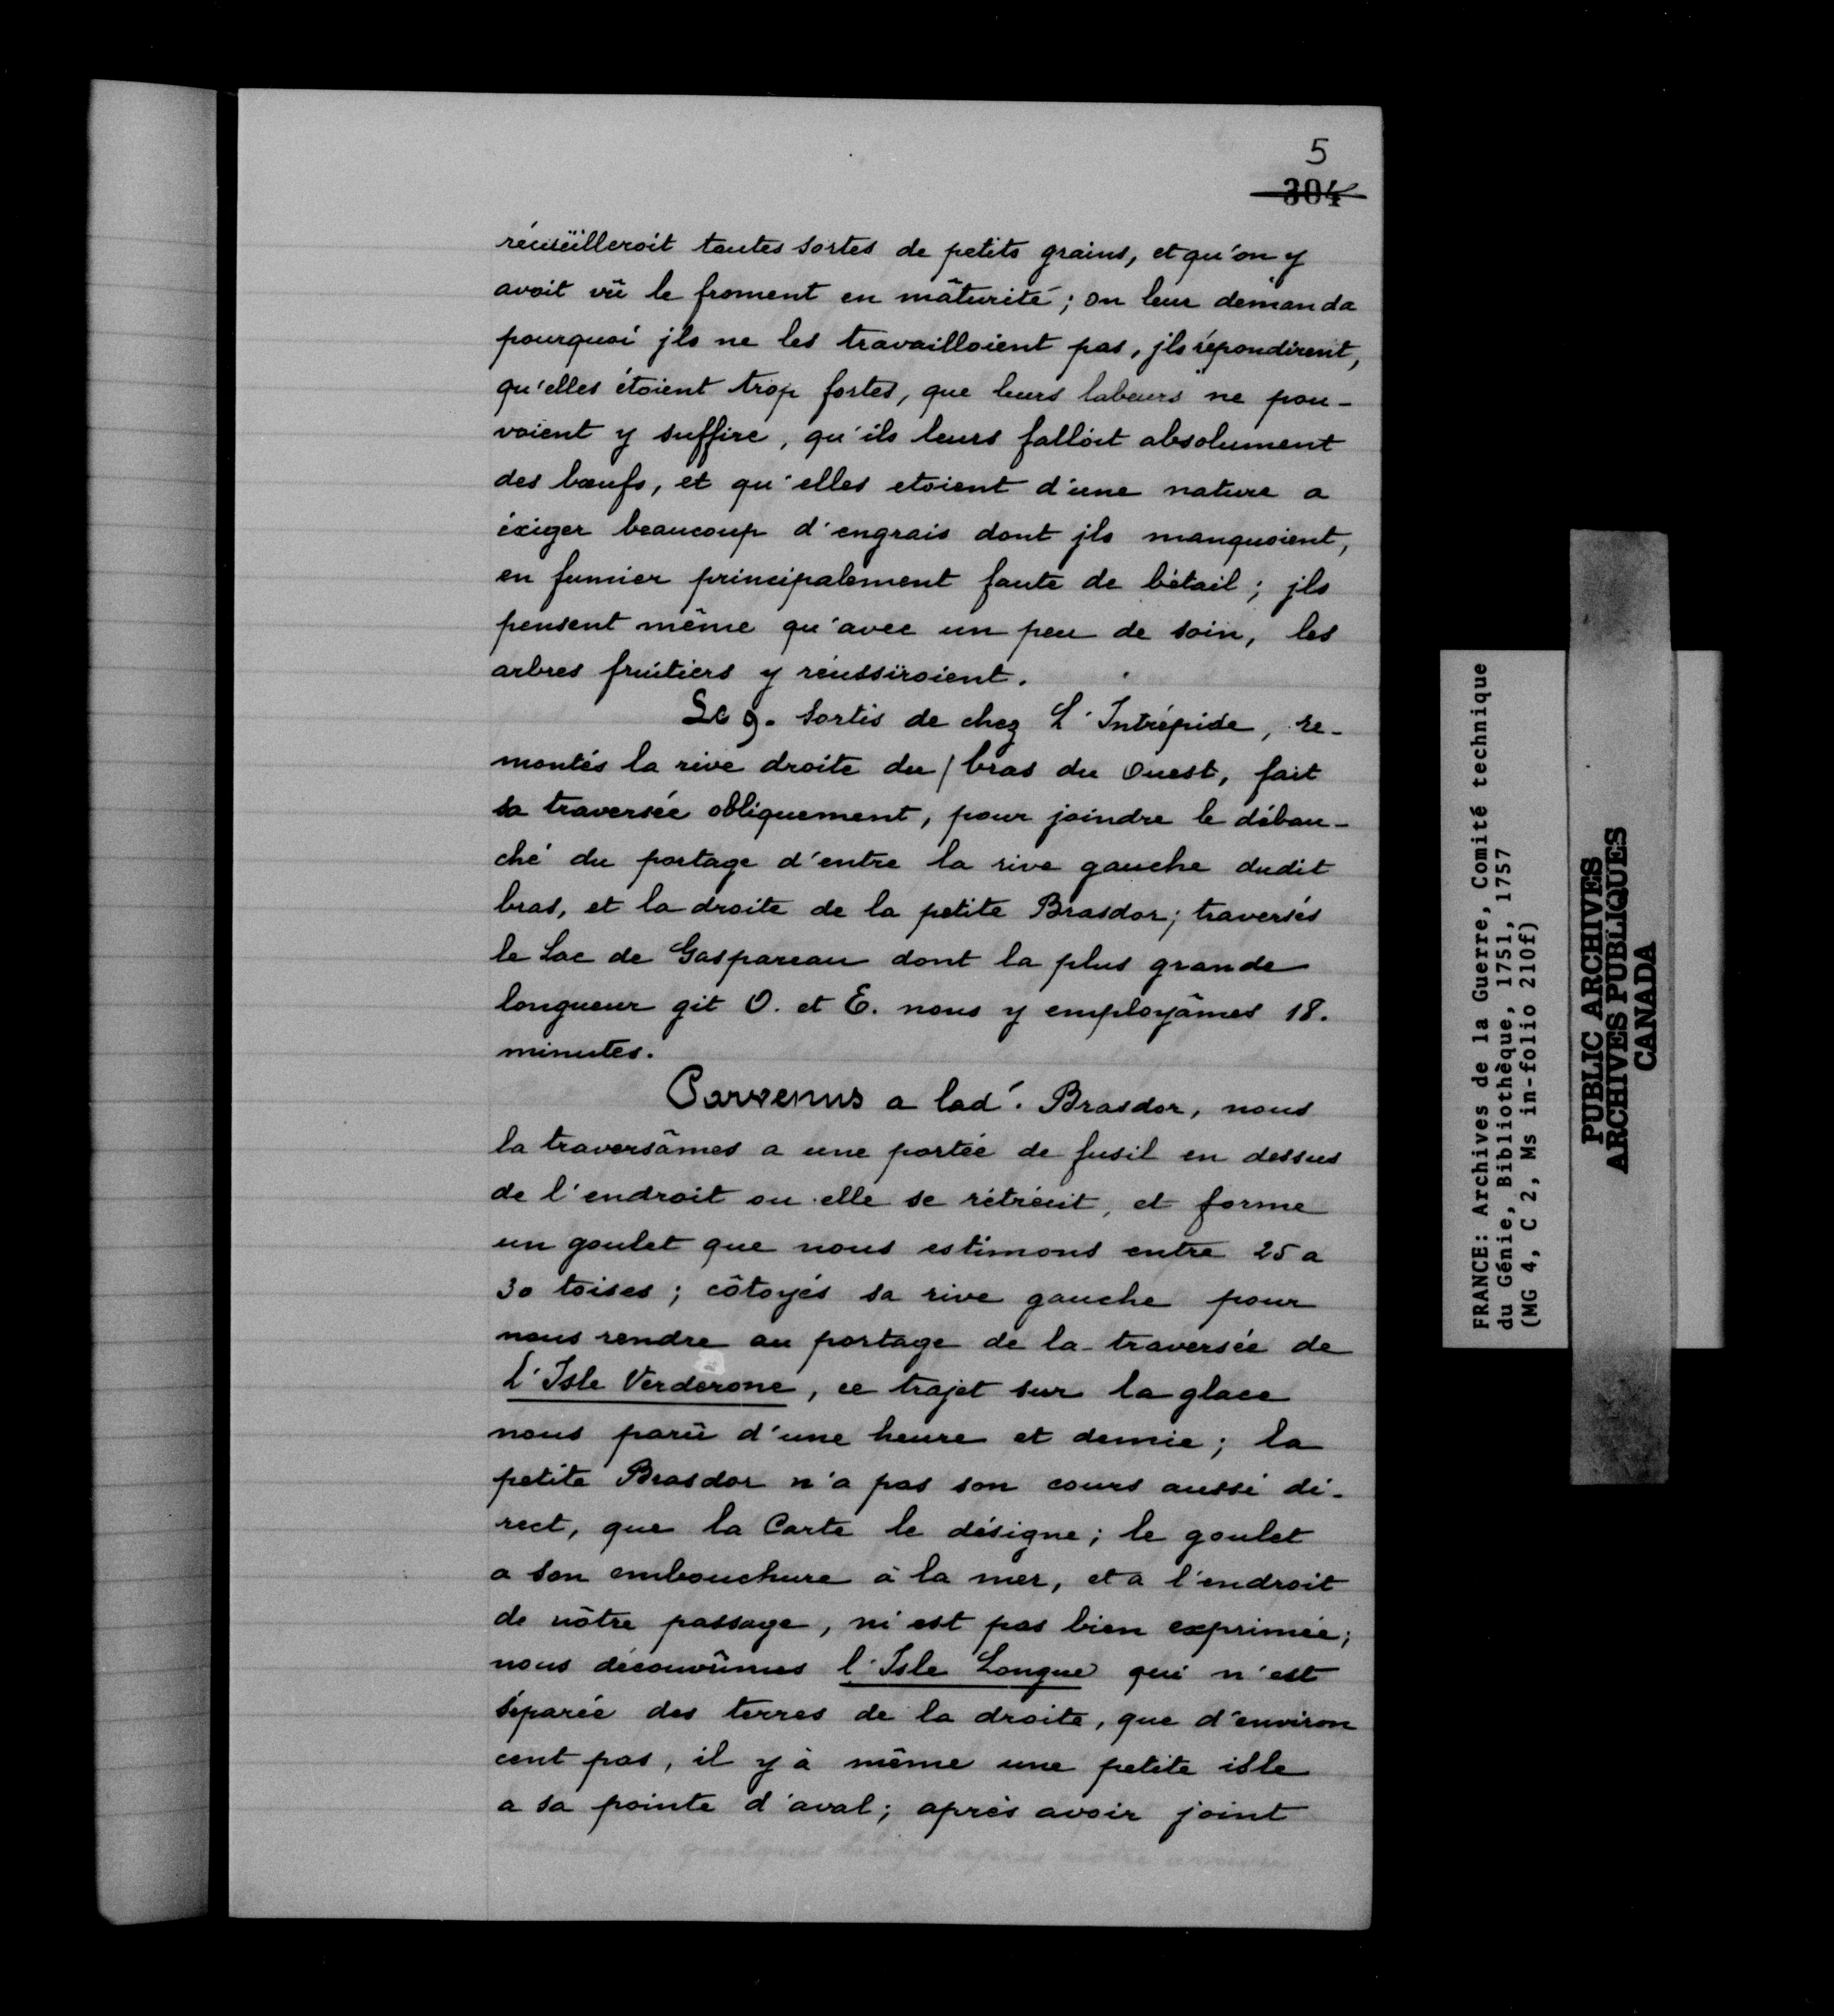 5
304
récuëilleroit toutes sortes de petits grains, et qu'on y
avoit vû le froment en mâturité; on leur demanda
pourquoi jls ne les travailloient pas, jls répondirent,
qu'elles étoient trop fortes, que leurs labeurs ne pou-
voient y suffire, qu'ils leurs falloit absolument
des bœufs, et qu'elles etoient d'une nature a
éxiger beaucoup d'engrais dont jls manquoient,
en fumier principalement faute de bétail; jls
pensent même qu'avec un peu de soin, les
arbres fruitiers y réussiroient.
Le 9. sortis de chez L'Intrépide, re-
montés la rive droite du / bras du Ouest, fait
sa traversée obliquement, pour joindre le débou-
ché du portage d'entre la rive gauche dudit
bras, et la droite de la petite Brasdor; traversés
le Lac de Gaspareau dont la plus grande
longueur git O. et E. nous y employâmes 18.
minutes.
Parvenus a lad'. Brasdor, nous
la traversâmes a une portée de fusil en dessus
de l'endroit ou elle se rétrécit, et forme
un goulet que nous estimons entre 25 a
30 toises; côtoyés sa rive gauche pour
nous rendre au portage de la traversée de
l'Isle Verderone, ce trajet sur la glace
nous parû d'une heure et demie; la
petite Brasdor n'a pas son cours aussi di-
rect, que la Carte le désigne; le goulet
a son embouchure à la mer, et a l'endroit
de nôtre passage, ni est pas bien exprimée;
nous décourûmes l'Isle Longue qui n'est
séparée des terres de la droite, que d'environ
cent pas, il y à même une petite isle
a sa pointe d'aval; après avoir joint
FRANCE: Archives de la Guerre, Comité technique
du Génie, Bibliothèque, 1751, 1757
(MG 4, C 2, Ms in-folio 210f)
PUBLIC ARCHIVES
ARCHIVES PUBLIQUES
CANADA